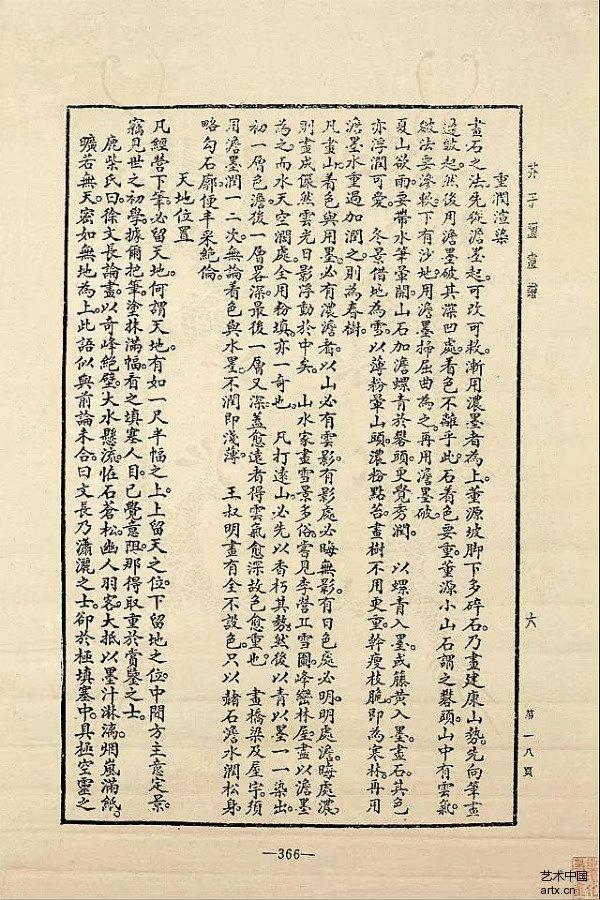 芥子園畫譜
六
第一八頁
重潤渲染
畫石之法先從澹墨起可改可救漸用濃墨者為上董源坡脚下多碎石乃畫建康山勢先向筆畫
邊皴起然後用澹墨破其深凹處着色不離乎此石着色要重董源小山石謂之礬頭山中有雲氣
皴法要滲軟下有沙地用澹墨掃屈曲為之再用澹墨破
夏山欲雨要帶水筆暈開山石加澹螺青於礬頭更覺秀潤 以螺青入墨或藤黃入墨畫石其色
亦浮潤可愛 冬景借地為雪以薄粉暈山頭濃粉點苔畫樹不用更重幹瘦枝脆即為寒林再用
澹墨水重過加潤之則為春樹
凡畫山着色與用墨必有濃澹者以山必有雲影有影處必晦無影有日色處必明明處澹晦處濃
則畫成儼然雲光日影浮動於中矣 山水家畫雪景多俗嘗見李營丘雪圖峰巒林屋盡以澹墨
為之而水天空潤處全用粉填亦一奇也 凡打遠山必先以香朽其勢然後以青以墨一一染出
初一層色澹後一層畧深最後一層又深蓋愈遠者得雲氣愈深故色愈重也 畫橋梁及屋宇須
用澹墨潤一二次無論着色與水墨不潤即淺薄 王叔明畫有全不設色只以赭石澹水潤松身
略勾石廓便丰采絶倫
天地位置
凡經營下筆必留天地何謂天地有如一尺半幅之上上留天之位下留地之位中間方主意定景
竊見世之初學據爾把筆塗抹滿幅看之填塞人目已覺意阻那得取重於賞鑒之士
鹿柴氏曰徐文長論畫以奇峰絶壁大水懸流怪石蒼松幽人羽客大抵以墨汁淋漓烟嵐滿紙
曠若無天密如無地為上此語似與前論未合曰文長乃瀟灑之士卻於極填塞中具極空靈之
—366—
艺术中国
artx.cn